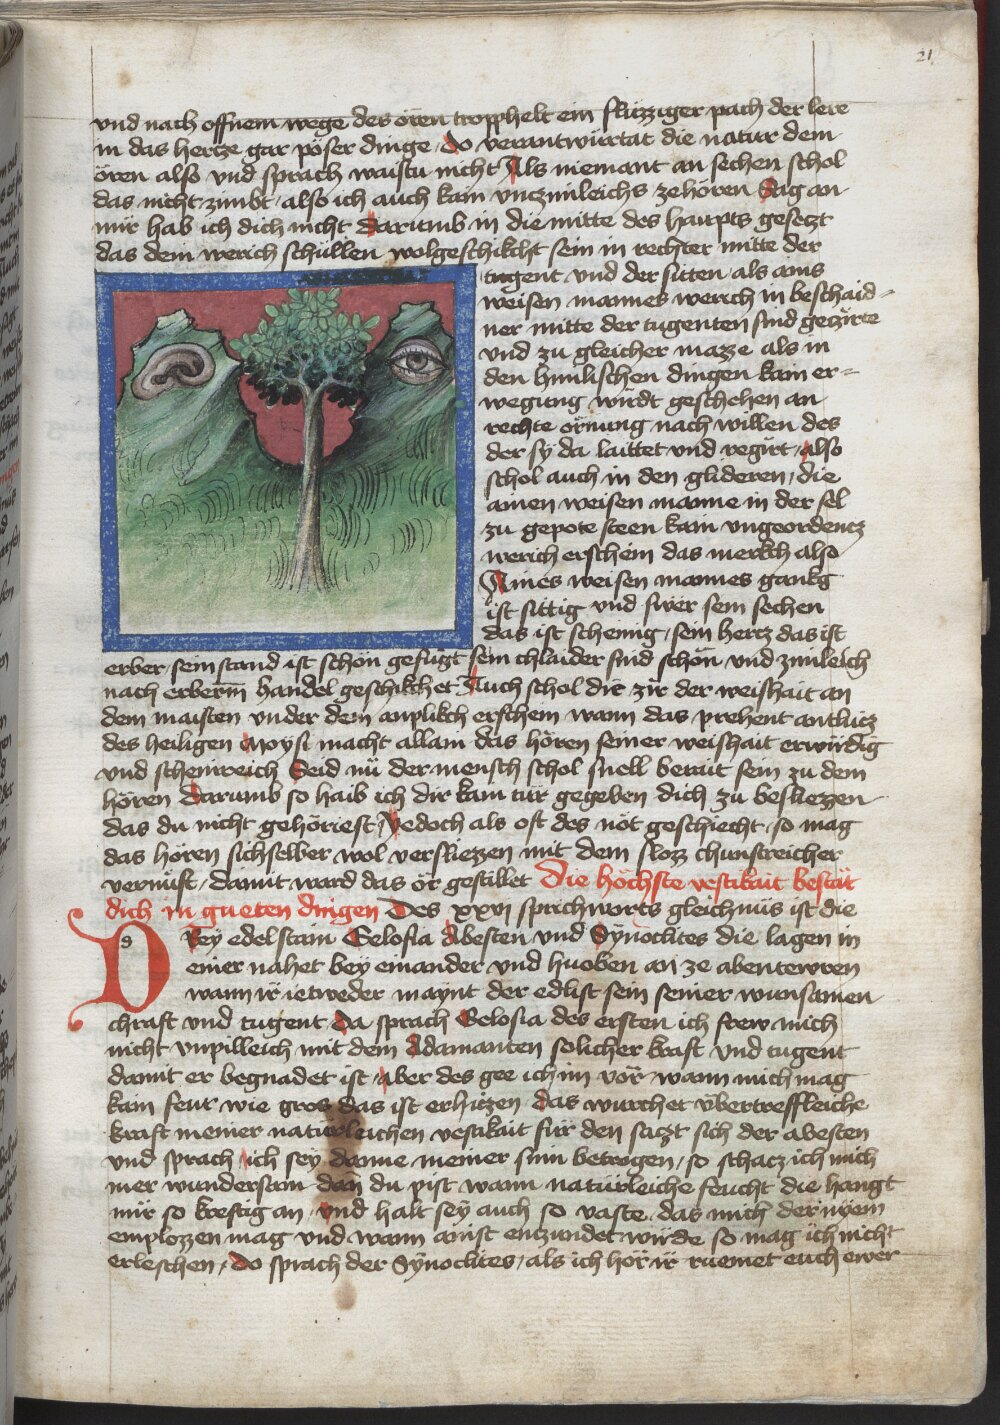 21
und nach offnem wege des oren tropphelt ein fluzziger pach der lere
in das hertze gar pöser dinge do verantwürtat die natur dem
ören also und sprach waistu nicht Als niemant an sechen schol
das nicht zimbt also ich auch kain unczimleichs zehören Sag an
mir hab ich dich nicht darumb in die mitte des haupts gesetzt
das dein werich schüllen wolgeschikcht sein in rechter mitte der
tugent und der sitten als ains
weisen mannes werich in beschaid-
ner mitte der tugenten sind geczirte
und zu gleicher mazze als in
den himlischen dingen kain er-
wegung wirdt geschehen an
rechte ornung nach willen des
der sy da laittet und regirt also
schol auch in den glideren die
ainen weisen manne in der sel
zu gepote steen kain ungeordentz
werich erschein das merkch also
Aines weisen mannes gankg
ist sittig und swer sein sechen
das ist scheinig sein hertz das ist
erber sein stand ist schön gefugt sein chlaider sind schön und zimleich
nach erberm handel geschikchet Auch schol die zir der weishait an
dem maisten under dem anplikch erschein wann das prehent antlitz
des heiligen Moysi macht allain das hören seiner weishait erwirdig
und scheinreich Seid nu der mensch schol snell berait sein zu dem
hören darumb so haib ich dir kain tür gegeben dich zu besliezzen
das du nicht gehöriest Yedoch als oft des not geschiecht so mag
das hören sichselber wol versliezzen mit dem slozz chunstreicher
vernüft damit ward das ör gestillet Die höchste vestikait bestät
dich in gueten dingen Des xxvi sprichworts gleichnüs ist die
Drey edelstain Gelosia Abesten und Synochites die lagen in
einer nahet bey einander und huoben an ze abentewren
wann ir ietweder maynt der edlist sein seiner wunsamen
chraft und tugent Da sprach Gelosia des ersten ich frew mich
nicht unpilleich mit dem Adamanten solicher kraft und tugent
damit er begnadet ist aber des gee ich im vor wann mich mag
kain feur wie gros das ist erhitzen das wurchet übertreffleiche
kraft meiner natürleichen vestikait für den saczt sich der abesten
und sprach ich sey danne meiner sinn betrogen so schacz ich mich
mer wundersam dan du pist wann natürleiche feucht die hangt
mir so kreftig an und halt sey auch so vaste das mich der nyem
emplozzen mag und wann ainst enczundet wirde so mag ich nicht
erleschen do sprach der Synochites als ich hör ir ruemet euch ewer